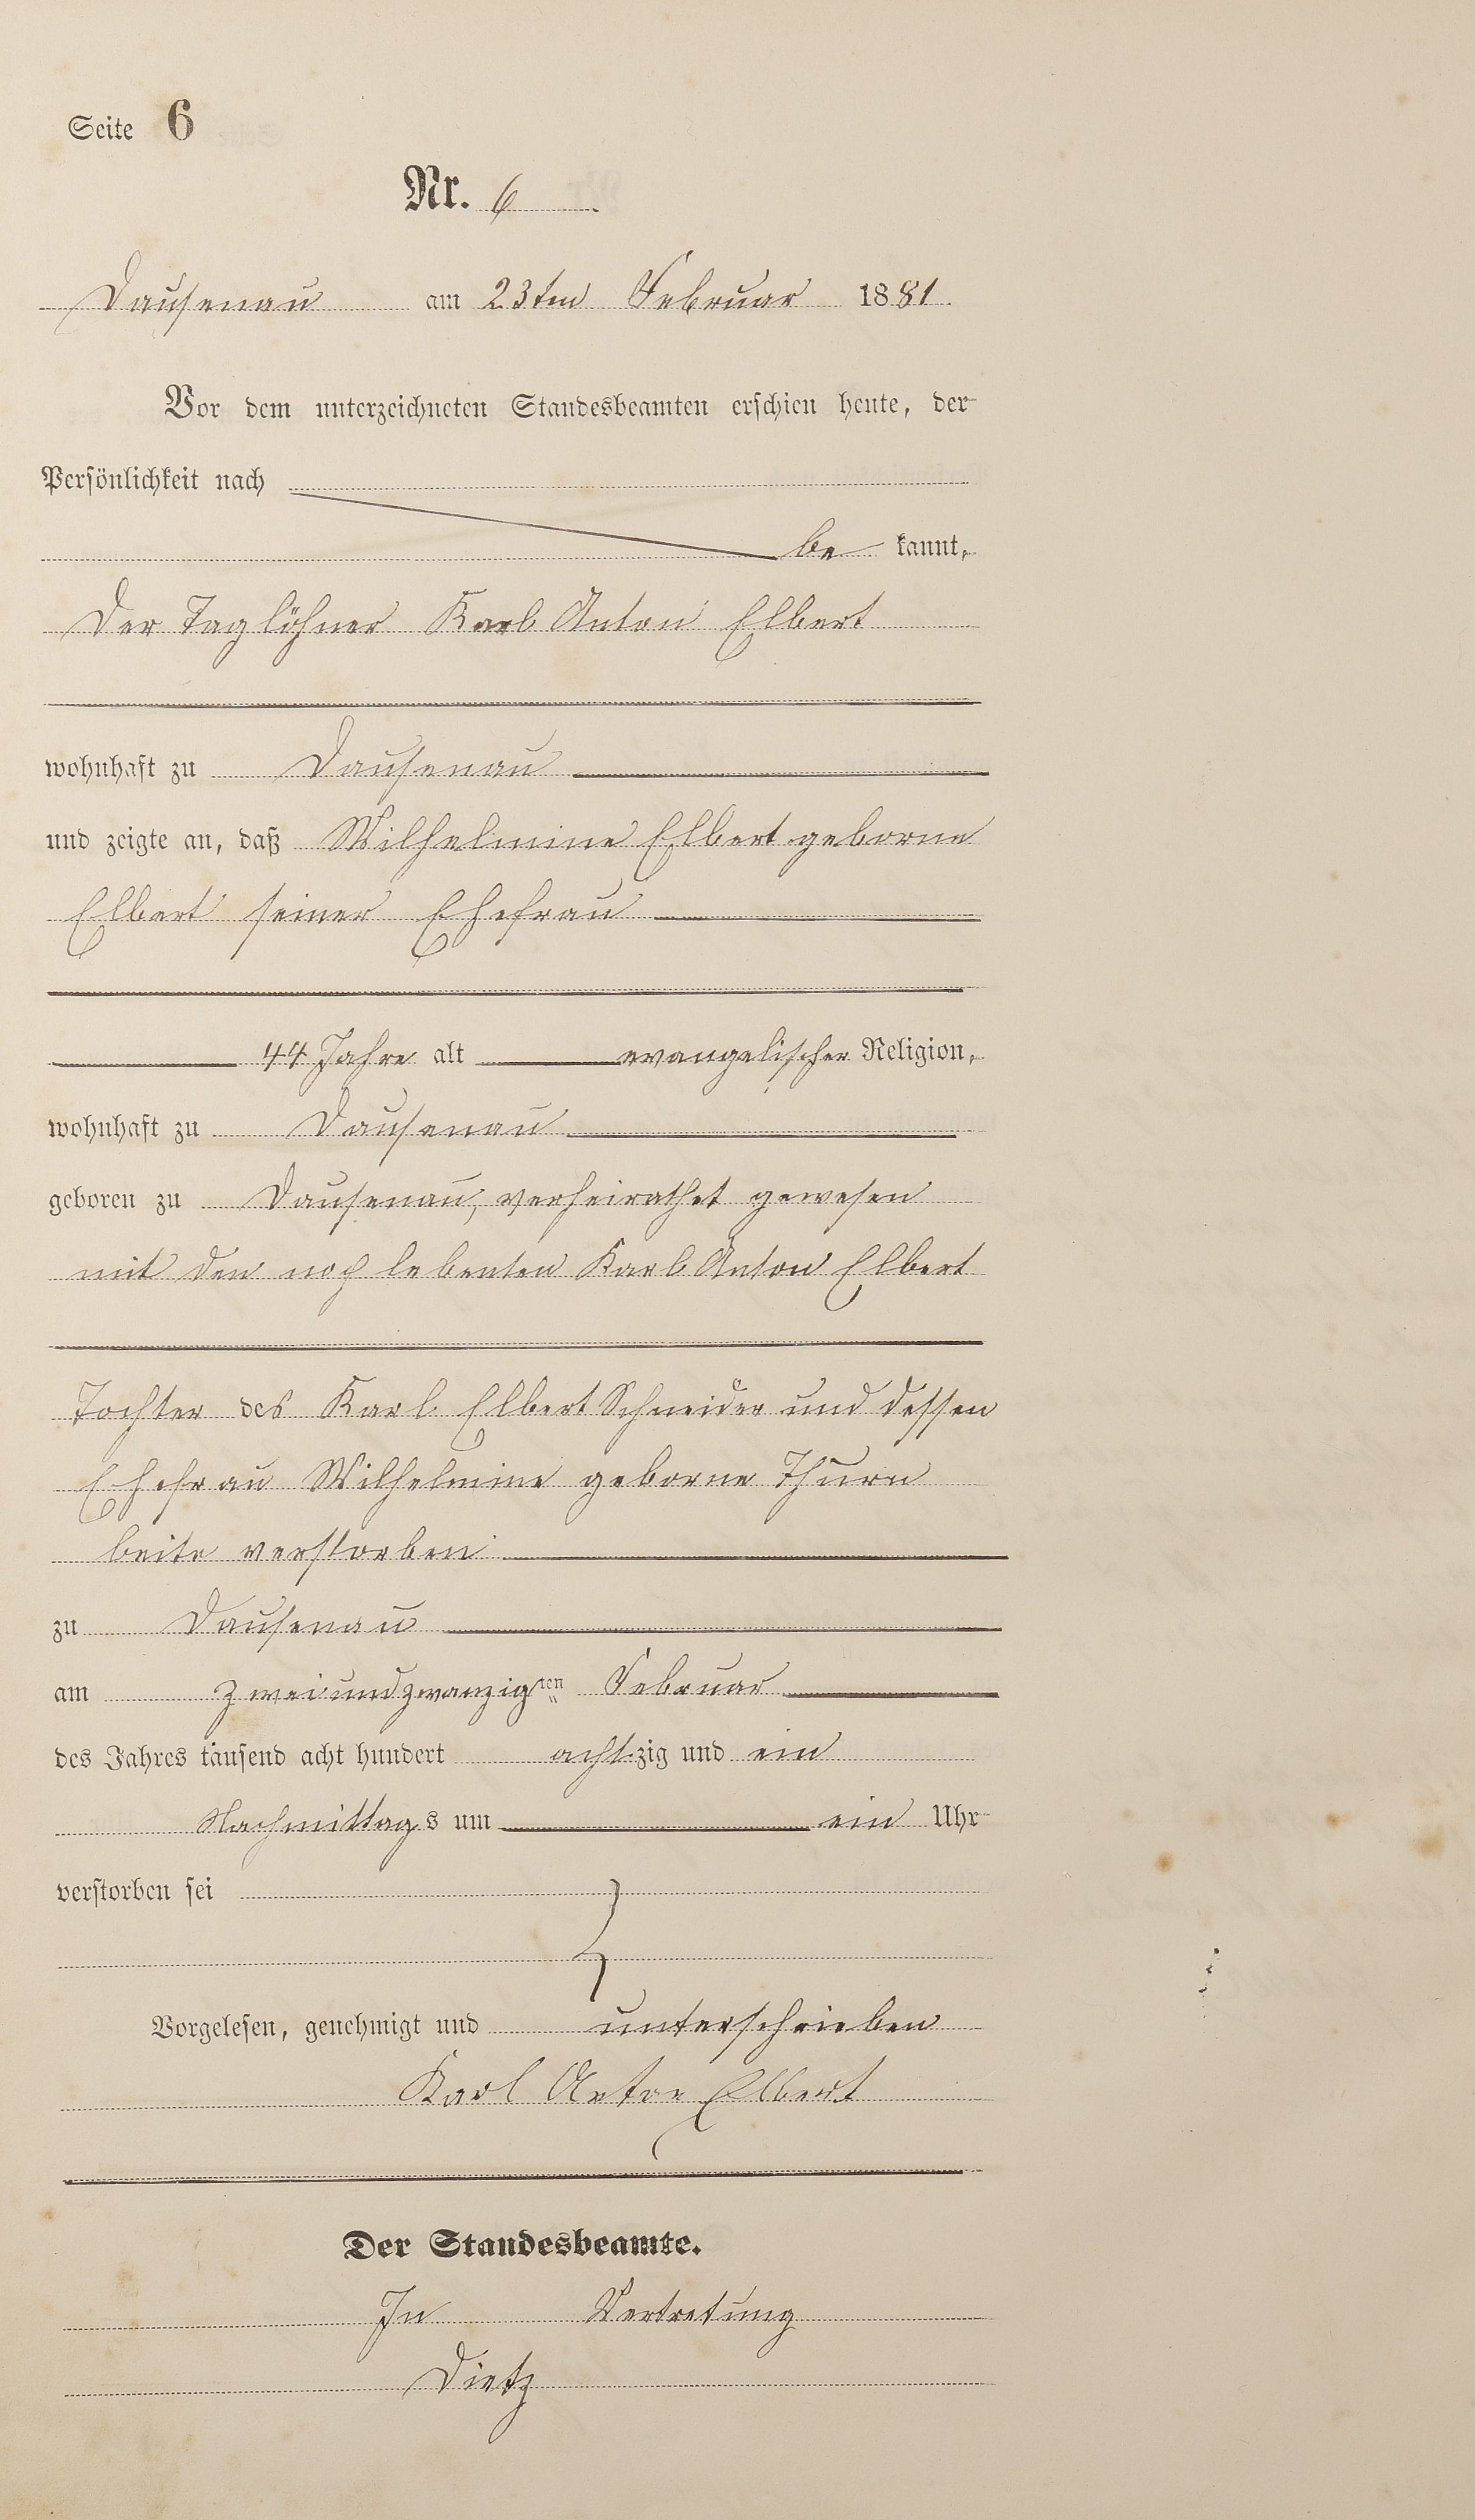 Seite 6
Nr. 6
Dausenau am 23ten Februar 1881.
Vor dem unterzeichneten Standesbeamten erschien heute, der
Persönlichkeit nach
be kannt,
der Taglöhner Karl Anton Elbert
wohnhaft zu Dausenau
und zeigte an, daß Wilhelmine Elbert geborne
Elbert seiner Ehefrau
44 Jahre alt evangelischer Religion,
wohnhaft zu Dausenau
geboren zu Dausenau, verheirathet gewesen
mit den noch lebenten Karl Anton Elbert
Tochter des Karl Elbert Schneider und dessen
Ehefrau Wilhelmine geborne Thurn
beite verstorben
zu Dausenau
am zweiundzwanzigten Februar
des Jahres tausend acht hundert achtzig und ein
Nachmittags um ein Uhr
verstorben sei
Vorgelesen, genehmigt und unterschrieben
Karl Anton Elbert
Der Standesbeamte.
In Vertretung
Dietz